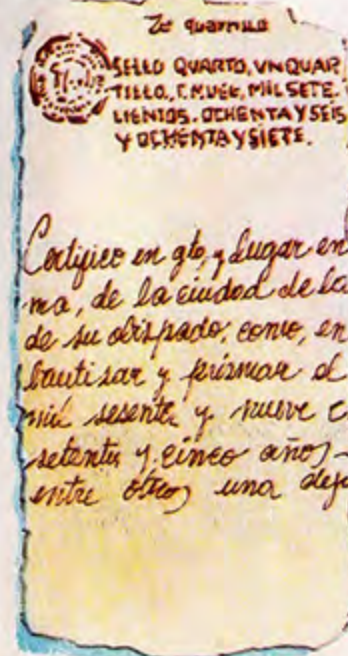 Zo quarnilo
SELLO QUARTO, VN QUAR
TILLO, T. MUEG, MIL SETE.
LIENTOS. OCHENTA Y SEIS
Y OCHENTA Y SIETE.
Certifico en gto, y Lugar en
ma, de la ciudad de la
de su obispado, como, en
bautisar y prismar el
mil sesenta y nueve c
setenta y cinco años -
entre otros una deja